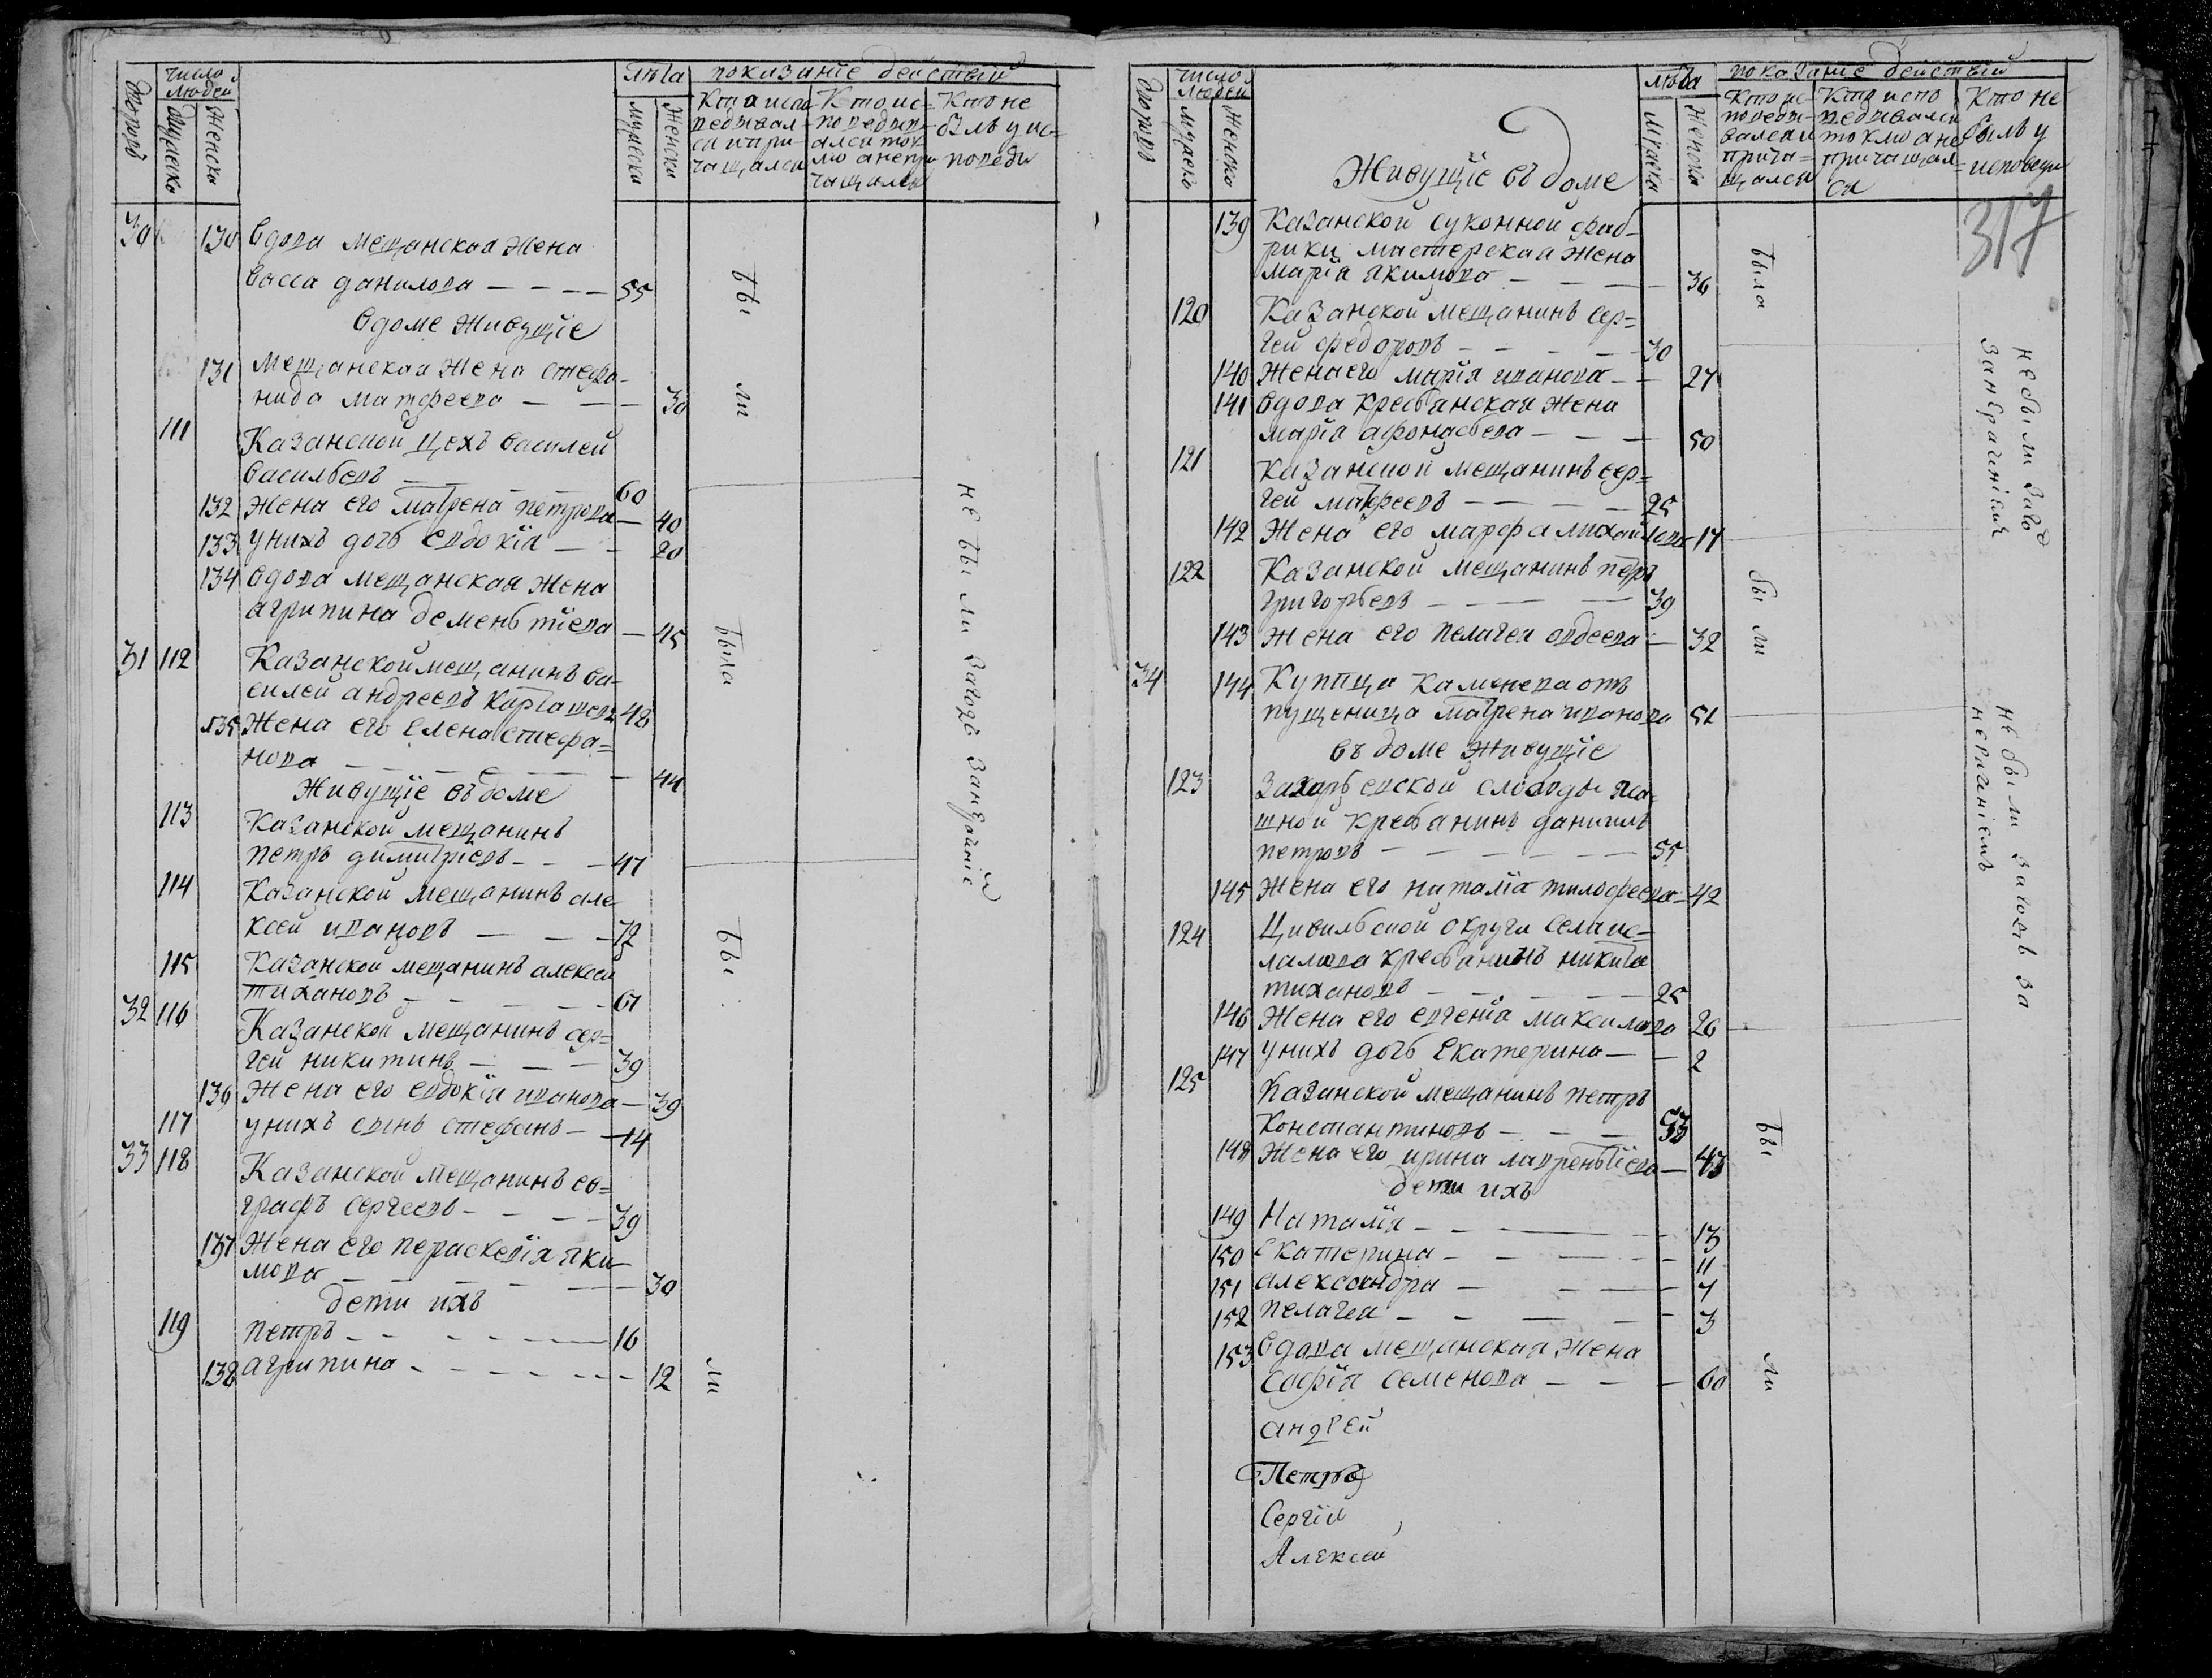 дворовъ
число людей
мужеска
женска
лѣта
мужеска
женска
показание действий
Кто испо=
ведывал=
ся и при=
чащался
Кто ис=
поведыв=
ался ток=
мо а непри
чащался
Кто не
былъ у ис=
поведи
30 130 вдова мещанская жена
васса данилова 55
вдоме живущіе
131 мещанская жена стефа-
нида матфеева 30
111 Казанской цехъ василей
васильевъ 60
132 жена его матрена петрова 40
133 унихъ дочь евдокіа 20
134 вдова мещанская жена
агрипина дементіева 45
31 112 Казанской мещанинъ ва-
силей андреевъ карташевъ 48
135 жена его елена стефа=
нова 44
живущіе въ доме
113 Казанской мещанинъ
петръ димитріевъ 47
114 Казанской мещанинъ але
ксей ивановъ 72
115 Казанской мещанинъ алексей
тихановъ 61
32 116 Казанской мещанинъ сер=
гей никитинъ 39
136 жена его евдокіа иванова 39
117 унихъ сынъ стефанъ 14
33 118 Казанской мещанинъ ев=
графъ сергеевъ 39
137 жена его параскевіа яки
мова 30
дети ихъ
119 петръ 16
138 агрипина 12
бы
ли
была
бы
ли
не были загодъ занерачніе
дворовъ
число людей
мужеска
женска
Живущіе въ доме
лѣта
мужеска
женска
показание действий
Кто ис=
поведы-
вался и
прича=
щался
Кто испо
ведывался
токмо а не
причащал=
ся
Кто не
былъ у
исповеди
317
139 Казанской суконной фаб-
рики мастерская жена
маріа якимова 36
120 Казанской мещанинъ сер=
гей федоровъ 30
140 жена его маріа иванова 27
141 вдова крестьянская жена
маріа афонасьева 50
121 Казанской мещанинъ сер=
гей матфеевъ 25
142 жена его марфа михайлова 17
122 Казанской мещанинъ петръ
григорьевъ 39
143 жена его пелагеа авдеева 32
34 144 Купца каменева от
пущеница матрена иванова 51
въ доме живущіе
123 захарьевской слободы па
шной кресьанинъ данилъ
петровъ 55
145 жена его наталіа тимофеева 42
124 Цивильской округи села ис=
ламова кресьанинъ никита
тихановъ 25
146 жена его евгеніа максимова 26
147 унихъ дочь екатерина 2
125 Казанской мещанинъ петръ
Константиновъ 53
148 жена его ирина лаврентіева 43
дети ихъ
149 Наталіа 13
150 екатерина 11
151 александра 7
152 пелагеа 3
153 вдова мещанская жена
софіа семенова 60
андрей
Петръ
Сергій
Алексей
была
бы
ли
бы
ли
не были загод
занерачніемъ
не были загодъ за
нерачніемъ